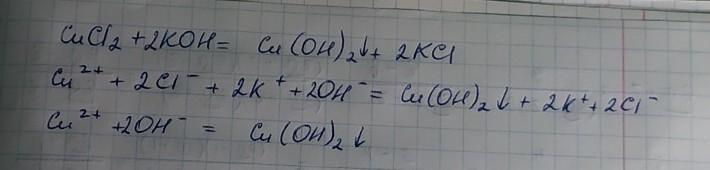 CuCl₂ + 2KOH = Cu(OH)₂↓ + 2KCl
Cu²⁺ + 2Cl⁻ + 2K⁺ + 2OH⁻ = Cu(OH)₂↓ + 2K⁺ + 2Cl⁻
Cu²⁺ + 2OH⁻ = Cu(OH)₂↓